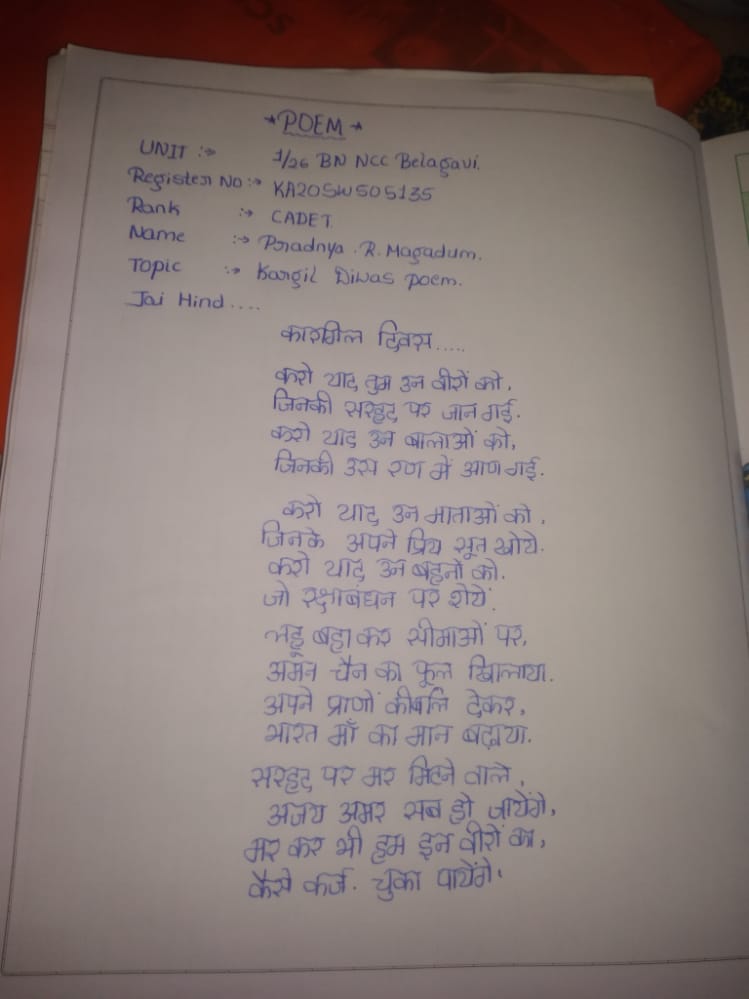 *POEM*
UNIT :→ 1/26 BN NCC Belagavi.
Register No :→ KA20SW505135
Rank :→ CADET.
Name :→ Pradnya . R. Magadum.
Topic :→ Kargil Diwas poem.
Jai Hind ....
कारगिल दिवस.....
करो याद तुम उन वीरों को,
जिनकी सरहद पर जान गई.
करो याद उन बालाओं को,
जिनकी उस रण में आण गई.
करो याद उन माताओं को,
जिनके अपने प्रिय सूत खोये.
करो याद उन बहनों को.
जो रक्षाबंधन पर रोयें.
लहू बहा कर सीमाओं पर,
अमन चैन का फूल खिलाया.
अपने प्राणों कीबलि देकर,
भारत माँ का मान बढ़ाया.
सरहद पर मर मिटने वाले,
अजय अमर सब हो जायेंगे,
मर कर भी हम इन वीरों का,
कैसे कर्ज. चुका पायेंगे.